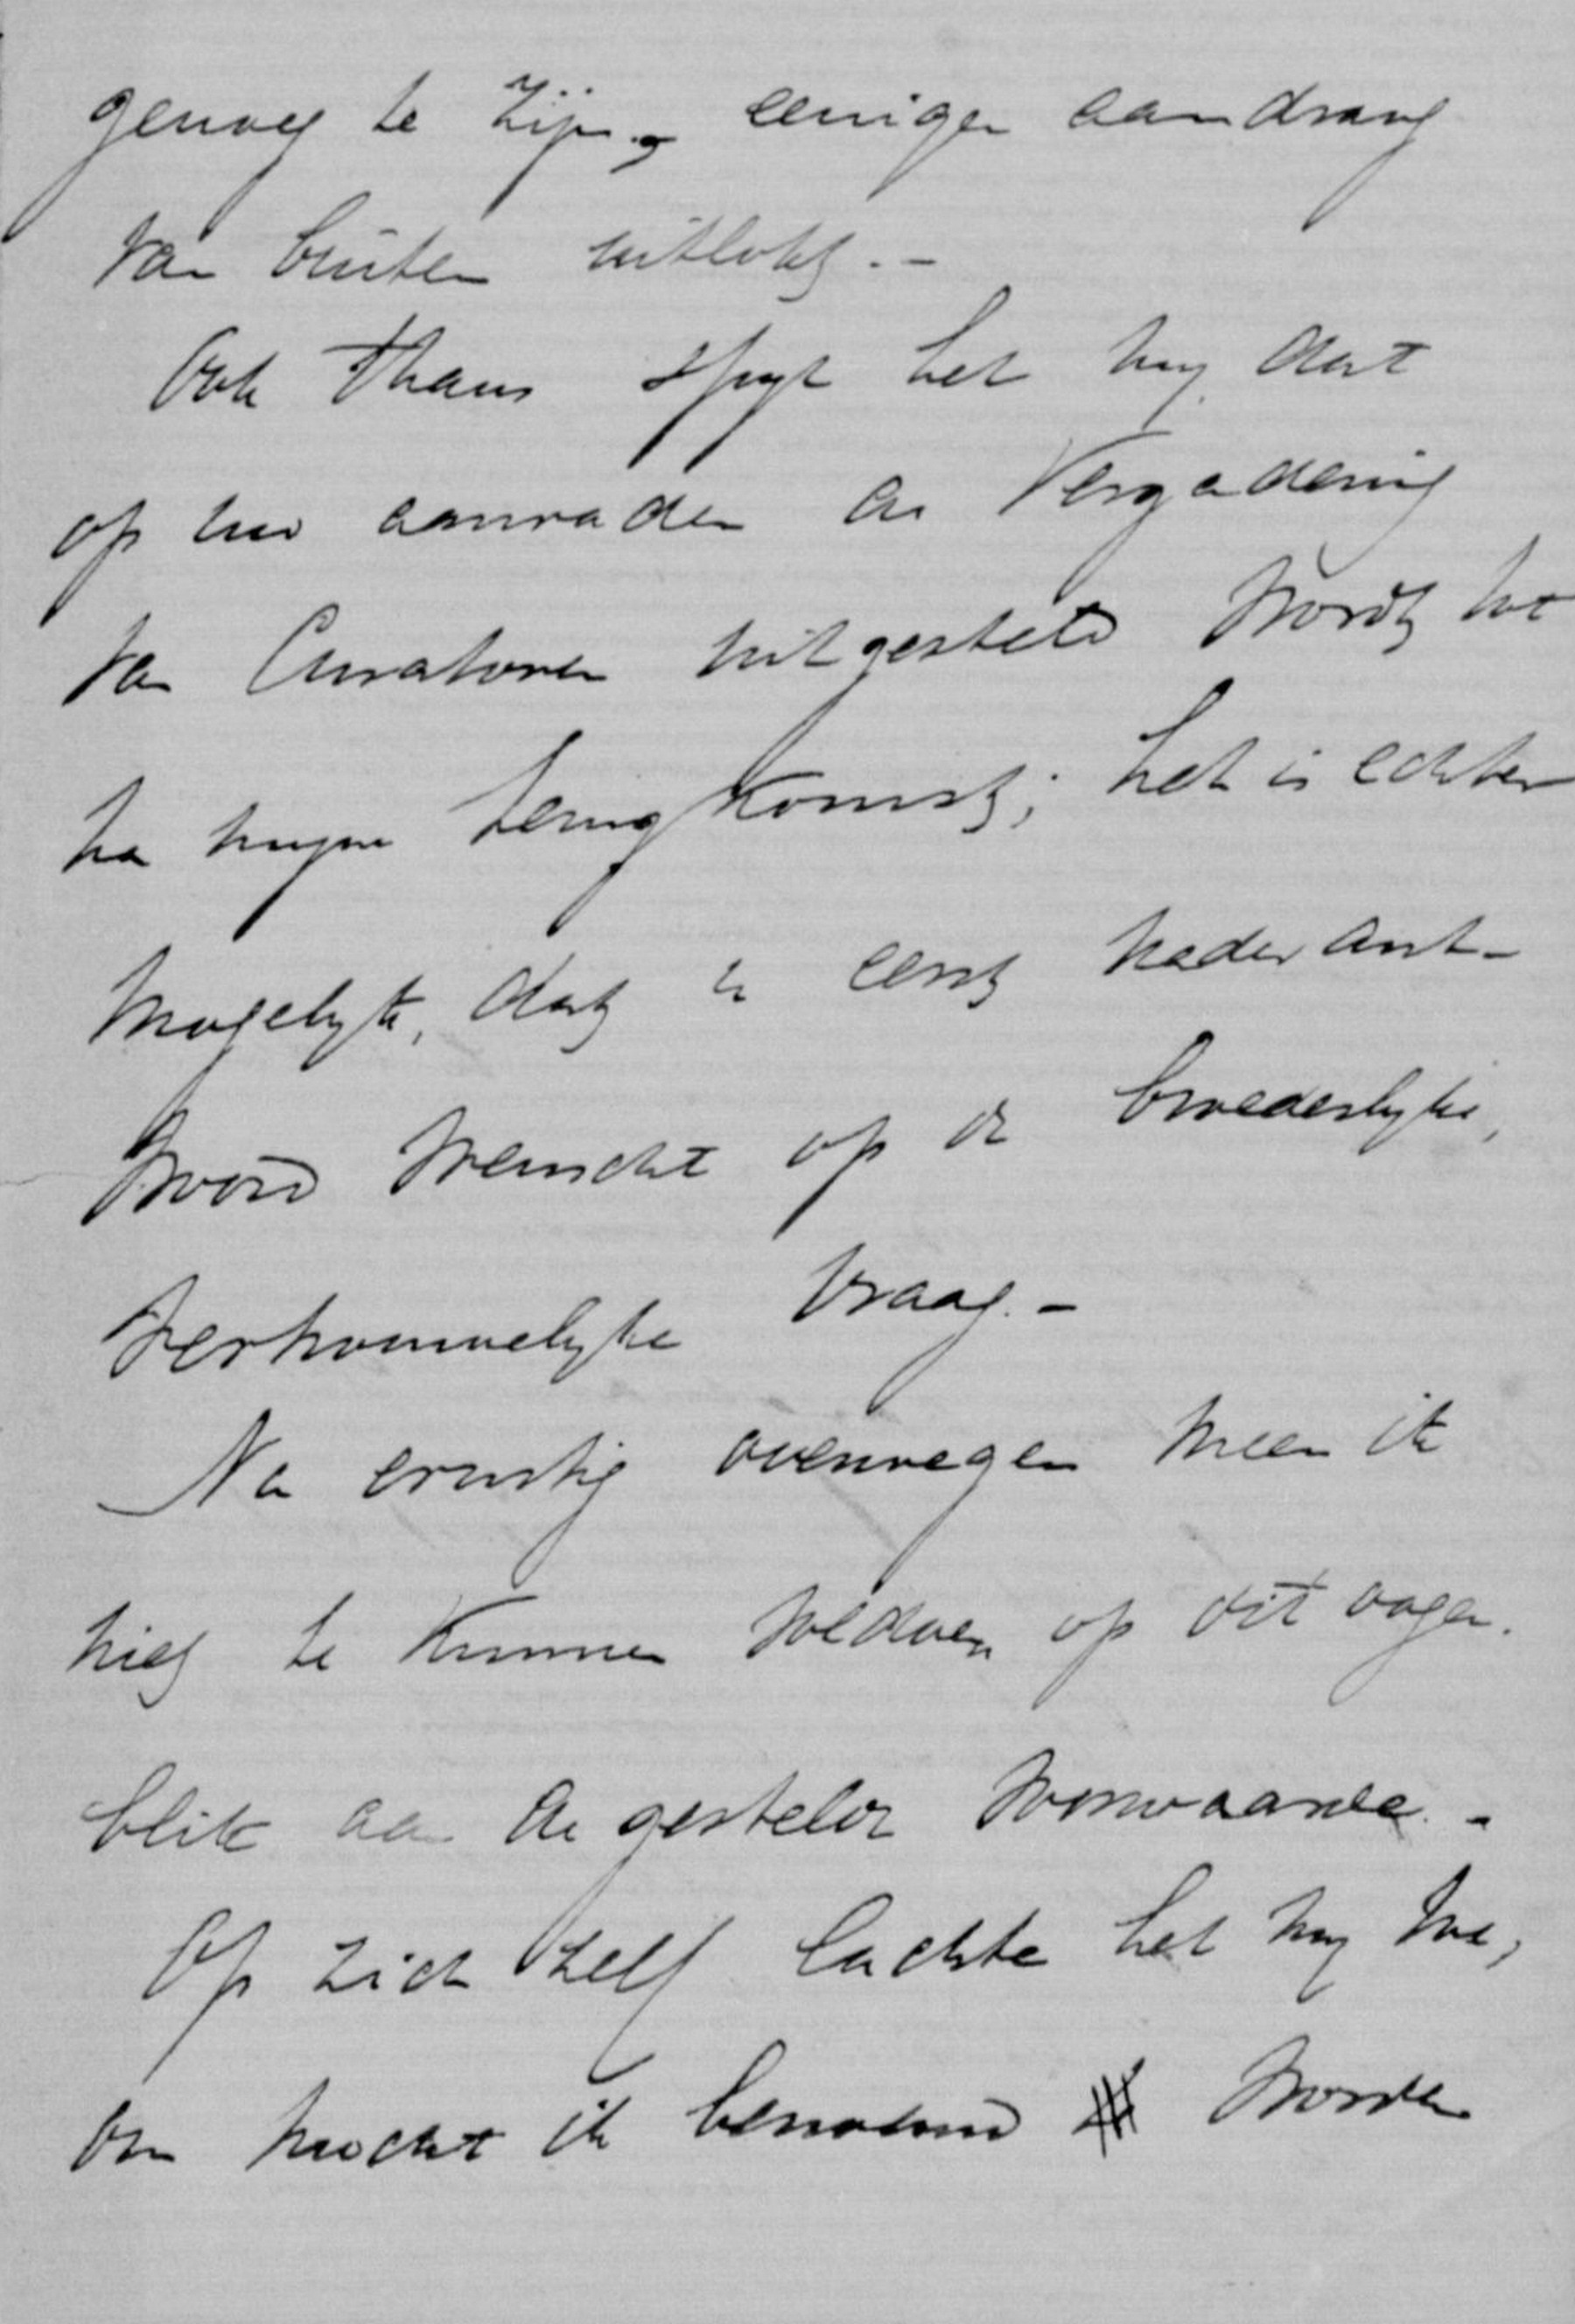 genoeg te zijn, eenigen aandrang
van buiten uitlokt. -
Ook thans spijt het mij dat
op uw aanraden de Vergadering
van Curatoren uitgesteld wordt tot
na mijne terugkomst; het is echter
mogelijk, dat u eerst nader ant-
woord wenscht op de broederlijke,
vertrouwelijke vraag. -
Na ernstig overwegen meen ik
niet te kunnen voldoen op dit oogen.
blik aan de gestelde voorwaarde. -
Op zich zelf lachte het mij toe,
om mocht ik benoemd worden